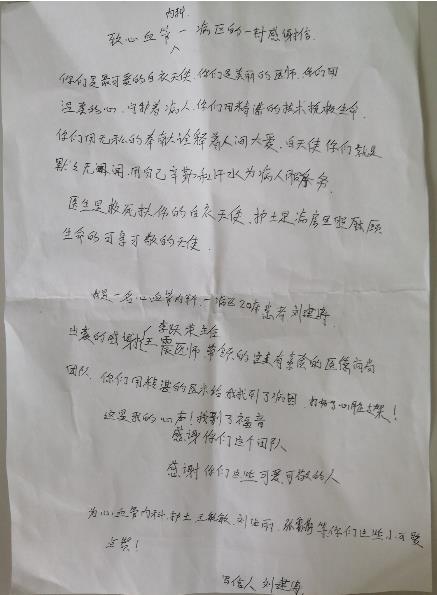 致心血管内科一病区的一封感谢信
你们是最可爱的白衣天使,你们是美丽的医师,你们用
温柔的心,守护着病人,你们用精湛的技术挽救生命,
你们用无私的奉献诠释着人间大爱,白天使你们就是
默默无闻,用自己辛勤和汗水为病人服务
医生是救死扶伤的白衣天使,护士是病房里照顾
生命的可亲可敬的天使
我是一名心血管内科一病区20床患者刘建
衷的感谢李跃荣主任 震医师带领的这支有的医德高尚
团队,你们用精湛的医术给我找到了病因,
这是我的心声!我找到了福音
感谢你们这个团队
感谢你们这些可爱可敬的人
为心血管内科护士王敏敏,刘,张等你们这些小可爱
点赞!
写信人 刘建